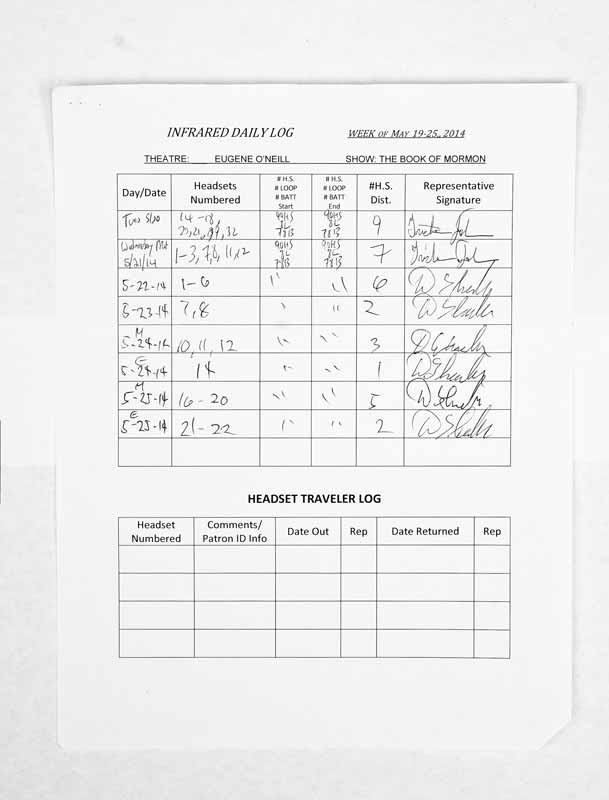 INFRARED DAILY LOG WEEK OF MAY 19-25, 2014
THEATRE: EUGENE O'NEILL SHOW: THE BOOK OF MORMON
Day/Date Headsets Numbered # H.S. # LOOP # BATT Start # H.S. # LOOP # BATT End #H.S. Dist. Representative Signature
Tues 5/20 14-18, 32 90HS 8L 78B 90HS 8L 78B 9
Wednesday Mat 5/21/14 1-3, 7,8, 11,12 90HS 8L 78B 90HS 8L 78B 7
5-22-14 1-6 " \\ 6
5-23-14 7,8 " " 2
M 5-24-14 10, 11, 12 " " 3
E 5-24-14 14 " " 1
M 5-25-14 16-20 " " 5
E 5-25-14 21-22 " " 2
HEADSET TRAVELER LOG
Headset Numbered Comments/ Patron ID Info Date Out Rep Date Returned Rep